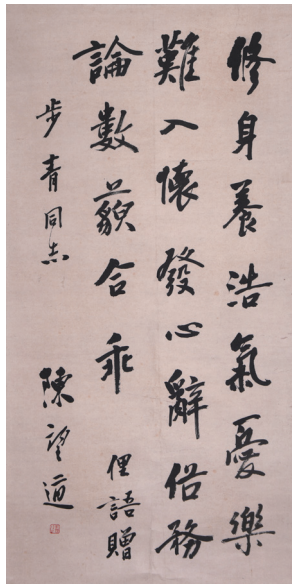 修身養浩氣憂樂
難入懷發心辭俗務
論數藐合乖 俚語贈
步青同志 陳望道